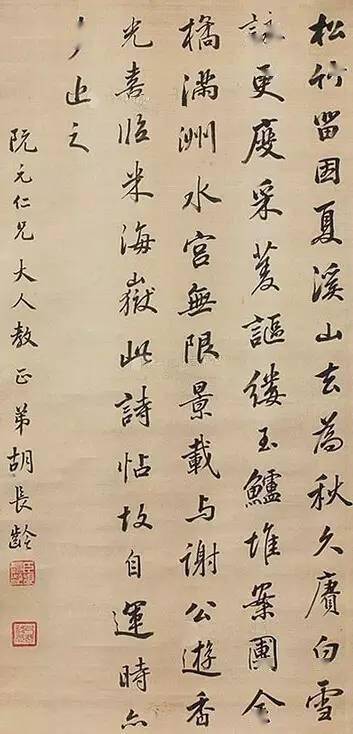 松竹留因夏溪山去為秋久賡白雪
詠更度采菱謳縷玉鱸堆案團金
橘滿洲水宮無限景載与謝公遊香
光喜臨米海嶽此詩帖故自運時亦
近之
阮元仁兄大人教正弟胡長齡